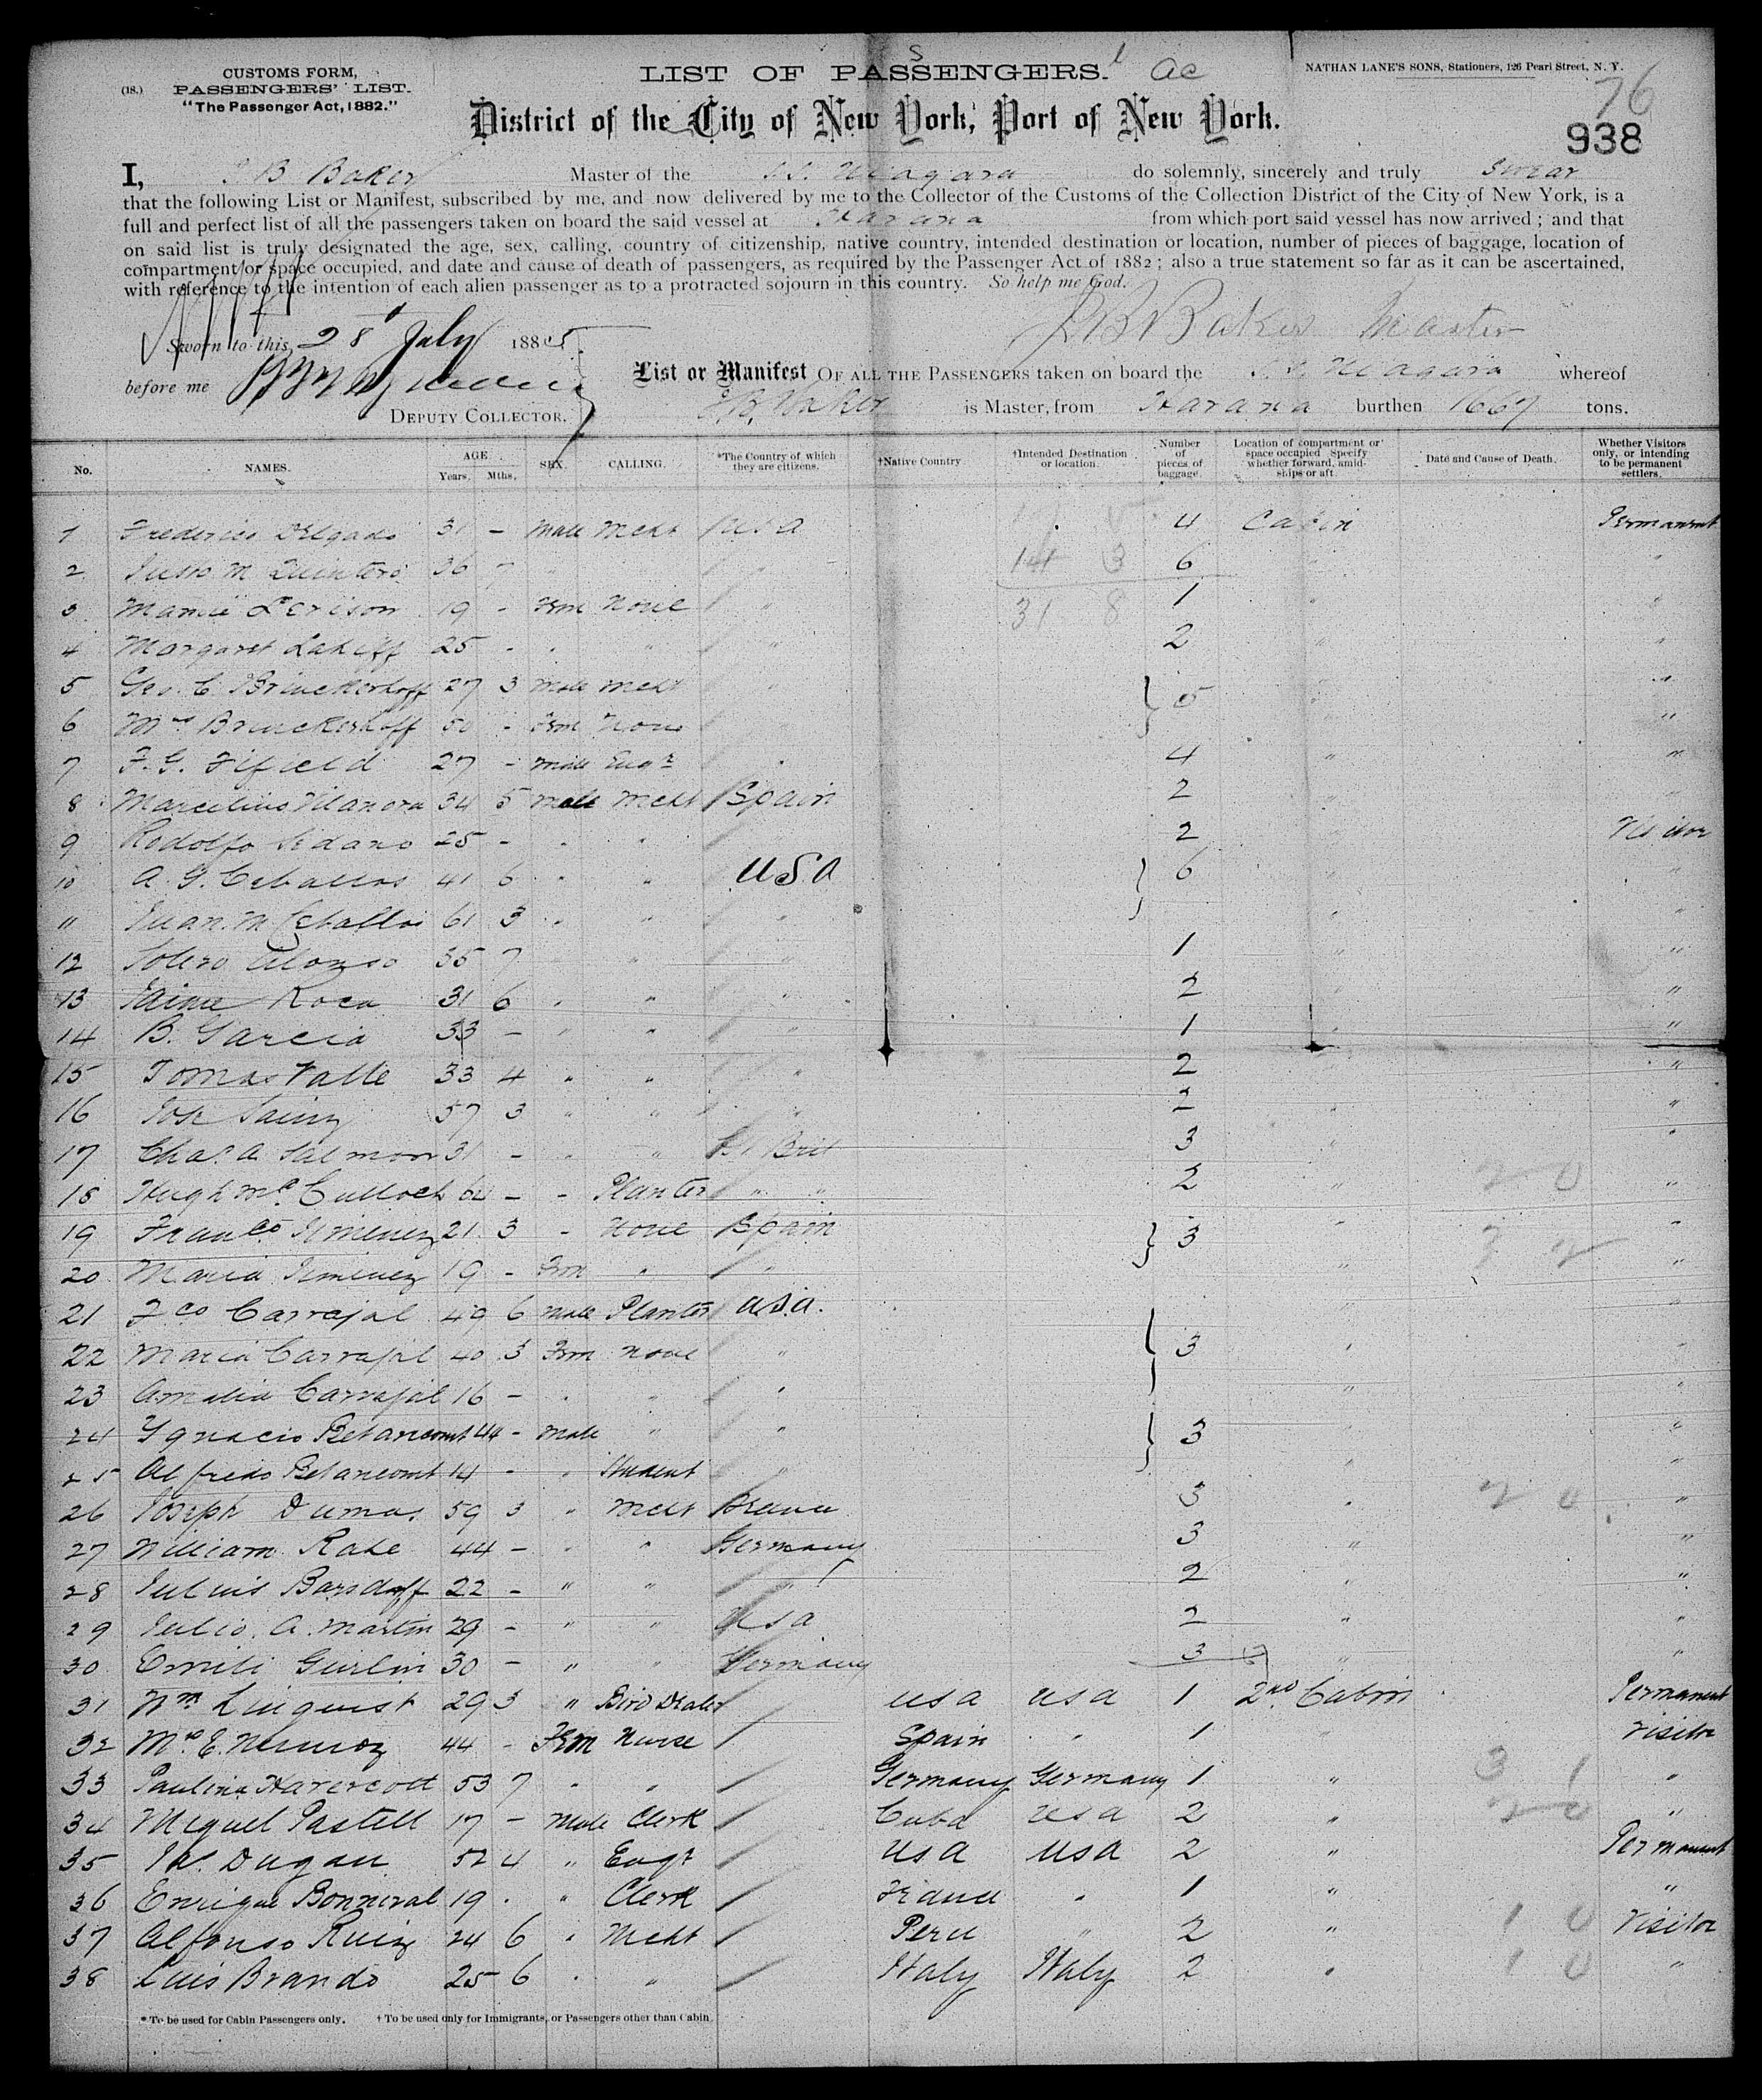 S 1
CUSTOMS FORM,
(18.) PASSENGERS' LIST.
"The Passenger Act, 1882."
LIST OF PASSENGERS. ac
NATHAN LANE'S SONS, Stationers, 126 Pearl Street, N. Y.
76
District of the City of New York, Port of New York.
938
I, B Baker Master of the S.S. Niagara do solemnly, sincerely and truly swear
that the following List or Manifest, subscribed by me, and now delivered by me to the Collector of the Customs of the Collection District of the City of New York, is a
full and perfect list of all the passengers taken on board the said vessel at Havana from which port said vessel has now arrived; and that
on said list is truly designated the age, sex, calling, country of citizenship, native country, intended destination or location, number of pieces of baggage, location of
compartment or space occupied, and date and cause of death of passengers, as required by the Passenger Act of 1882; also a true statement so far as it can be ascertained,
with reference to the intention of each alien passenger as to a protracted sojourn in this country. So help me God.
Sworn to this 28 July 1885
B Baker Master
before me
List or Manifest OF ALL THE PASSENGERS taken on board the S.S. Niagara whereof
DEPUTY COLLECTOR.
Baker is Master, from Havana burthen 1667 tons.
No. NAMES. AGE Years. Mths. SEX. CALLING. *The Country of which they are citizens. †Native Country †Intended Destination or location. Number of pieces of baggage. Location of compartment or space occupied Specify whether forward, amidships or aft. Date and Cause of Death. Whether Visitors only, or intending to be permanent settlers.
1 Frederico Delgado 31 - Male Mcht USA 4 Cabin Permanent
2 Quintero 36 - " " " 14 3 6 " "
3 Mamie 19 - Fem None " 31 8 1 " "
4 Margaret 25 - " " " 2 " "
5 Geo. C. Brinckerhoff 27 3 Male Mcht " } 5 " "
6 Mrs Brinckerhoff 50 - Fem None " "
7 F. G. Fifield 27 - Male Engr " 4 " "
8 Vilanova 34 5 Male Mcht Spain 2 " "
9 Rodolfo Sedano 25 - " " 2 Visitor
10 A. G. Ceballos 41 6 " " USA } 6 " "
11 Juan M Ceballos 61 3 " " " " "
12 Sotero Alonzo 35 7 " " " 1 " "
13 Jaime Roca 31 6 " " " 2 " "
14 B. Garcia 33 - " " " 1 " "
15 Tomas Valle 33 4 " " " 2 "
16 Jose Sainz 57 3 " " " 2 " "
17 Chas. A Salmon 31 - " " Gt Brit 3 " "
18 Hugh McCulloch 64 - - Planter " " 2 " 2 0 "
19 Franco Jimenez 21 3 - None Spain } 3 " "
20 Maria Jimenez 19 - Fem " " " "
21 Fco Carvajal 49 6 Male Planter U.S.A. " "
22 Maria Carvajal 40 3 Fem None " } 3 " "
23 Amelia Carvajal 16 - " " " " "
24 Ygnacio Betancourt 44 - Male " " } 3 " "
25 Alfredo Betancourt 14 - " Student " " "
26 Joseph Dumas 59 3 " Mcht France 3 " 2 0 "
27 William Rabe 44 - " " Germany 3 " "
28 Julius 22 - " " " 2 " "
29 Julio A. Martin 29 - " " USA 2 " "
30 30 - " " Germany 3 " "
31 Wm Linquist 29 3 " Bird Dealer USA USA 1 2nd Cabin Permanent
32 44 - Fem Nurse Spain " 1 " Visitor
33 Paulina 53 7 " " Germany Germany 1 " 3 1 "
34 Miguel Pastell 17 - Male Clerk Cuba USA 2 " 2 0 "
35 Dugan 52 4 " Engr USA USA 2 " Permanent
36 Enrique Bonneval 19 . " Clerk France " 1 " "
37 Alfonso Ruiz 24 6 " Mcht Peru " 2 " 1 0 Visitor
38 Luis Brando 25 6 " " Italy Italy 2 " 1 0 "
* To be used for Cabin Passengers only. † To be used only for Immigrants, or Passengers other than Cabin.